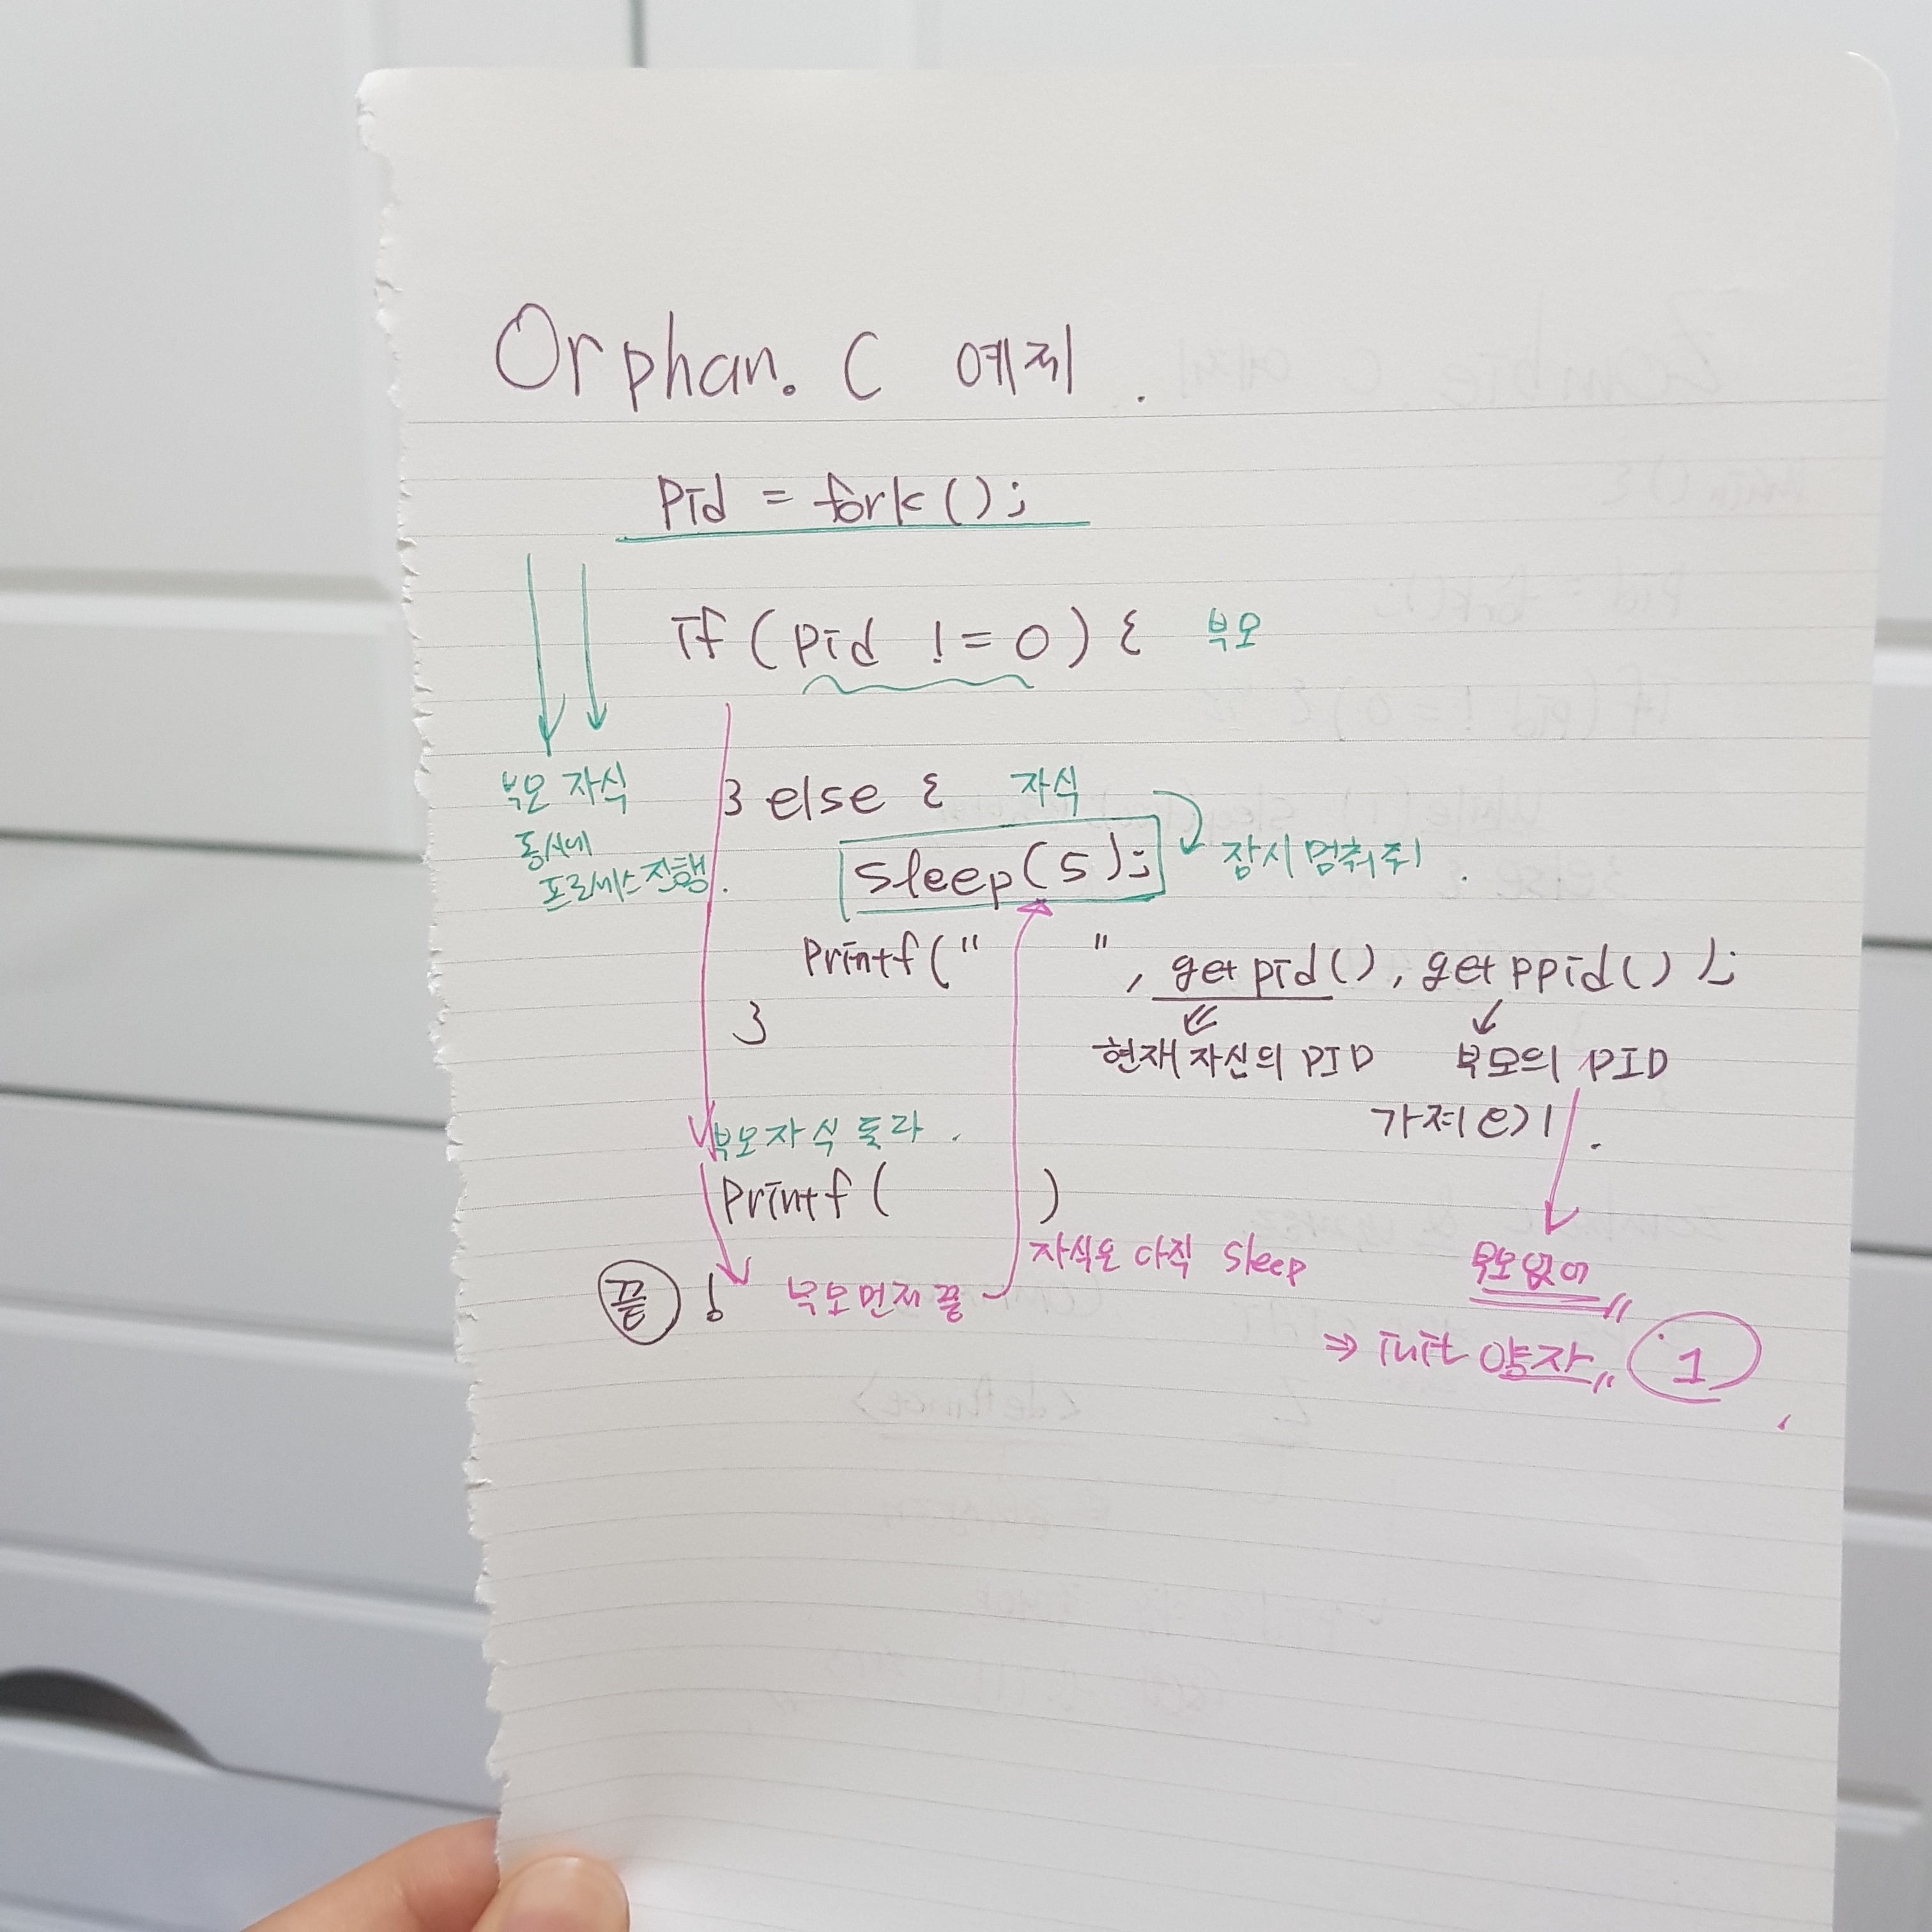 Orphan. C 예제.
pid = fork();
if (pid != 0) { 부모
부모 자식
동시에
프로세스 진행.
} else { 자식
sleep(5); 잠시 멈춰줘.
printf(" ", getpid(), getppid() );
}
현재 자신의 PID 부모의 PID
가져오기.
부모자식 둘라.
printf( )
자식은 아직 sleep
부모없어
끝 ! 부모먼저끝
⇒ init 양자,, 1